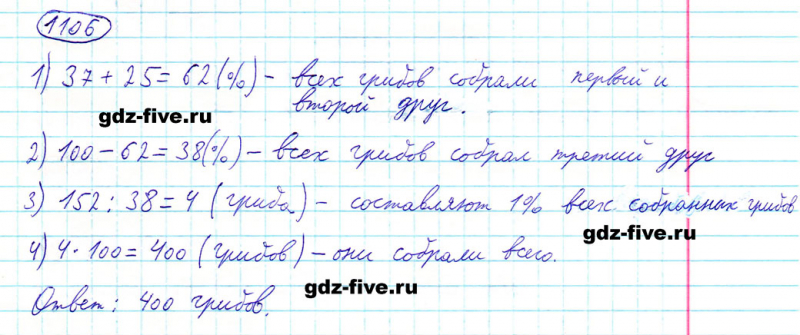 1106
1) 37 + 25 = 62 (%) - всех грибов собрали первый и
второй друг.
gdz-five.ru
2) 100 - 62 = 38 (%) - всех грибов собрал третий друг
gdz-five.ru
3) 152 : 38 = 4 (гриба) - составляют 1% всех собранных грибов
gdz-five.ru
4) 4 · 100 = 400 (грибов) - они собрали всего.
gdz-five.ru
Ответ: 400 грибов.